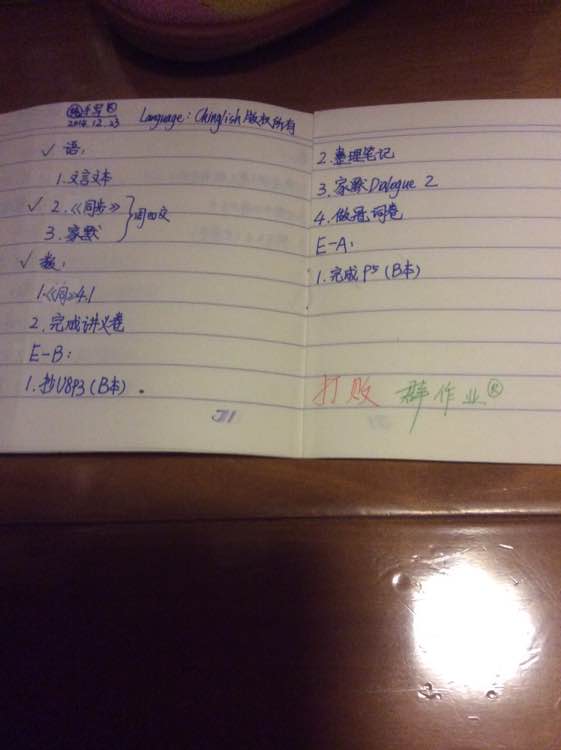 手写®
2014.12.23 Language: Chinglish 版权所有
✓ 语:
1.文言文本
✓ 2.《同步》
3.家默 } 周四交
✓ 数:
1.《同》4.1
2.完成讲义卷
E-B:
1.抄U8P3(B本).
2.整理笔记
3.家默Dialogue 2
4.做完词卷
E-A:
1.完成P5(B本)
打败 群作业®